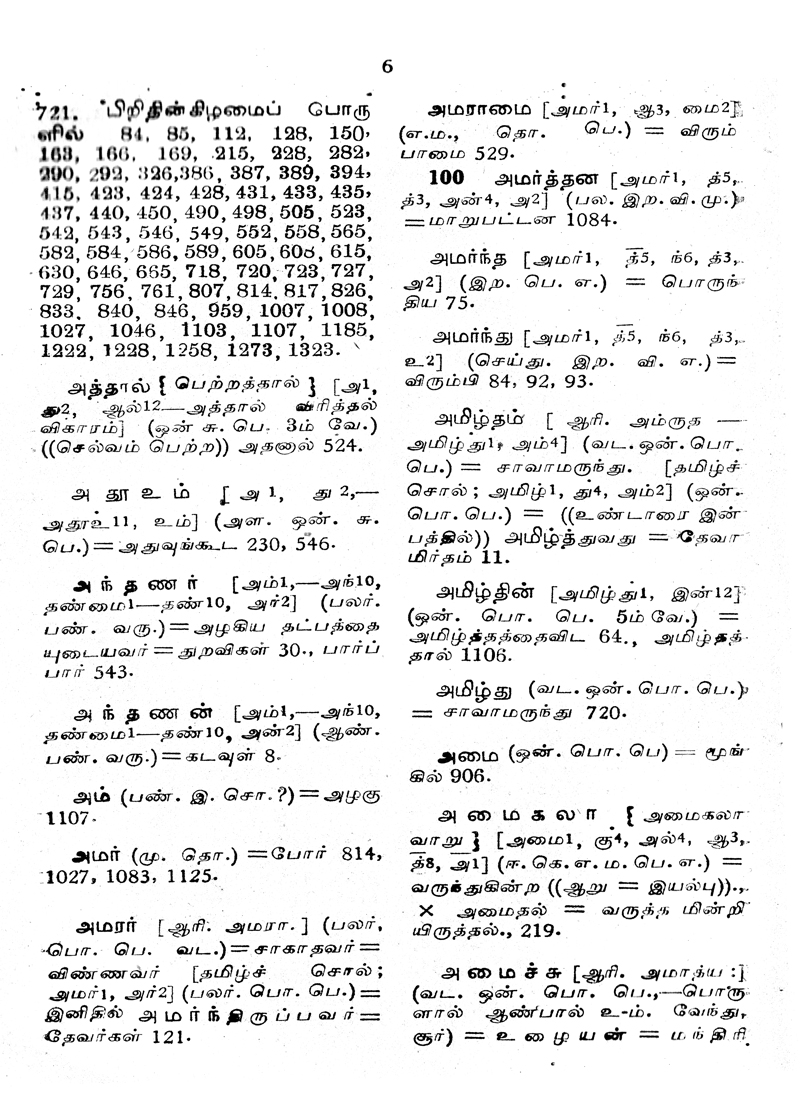 6
721. பிறிதின்கிழமைப் பொரு
ளில் 84, 85, 112, 128, 150,
163, 166, 169, 215, 228, 282,
290, 292, 326,386, 387, 389, 394,
415, 423, 424, 428, 431, 433, 435,
437, 440, 450, 490, 498, 505, 523,
542, 543, 546, 549, 552, 558, 565,
582, 584, 586, 589, 605, 608, 615,
630, 646, 665, 718, 720, 723, 727,
729, 756, 761, 807, 814, 817, 826,
833, 840, 846, 959, 1007, 1008,
1027, 1046, 1103, 1107, 1185,
1222, 1228, 1258, 1273, 1323.
அத்தால் { பெற்றத்தால் } [அ1,
து2, ஆல்12—அத்தால் விரித்தல்
விகாரம்] (ஒன் சு. பெ. 3ம் வே.)
((செல்வம் பெற்ற)) அதனால் 524.
அதூஉம் [அ1, து2,—
அதூஉ11, உம்] (அள. ஒன். சு.
பெ.)=அதுவுங்கூட 230, 546.
அந்தணர் [அம்1,—அந்10,
தண்மை1—தண்10, அர்2] (பலர்.
பண். வரு.)=அழகிய தட்பத்தை
யுடையவர்=துறவிகள் 30., பார்ப்
பார் 543.
அந்தணன் [அம்1,—அந்10,
தண்மை1—தண்10, அன்2] (ஆண்.
பண். வரு.)=கடவுள் 8.
அம் (பண். இ. சொ.?)=அழகு
1107.
அமர் (மு. தொ.) =போர் 814,
1027, 1083, 1125.
அமரர் [ஆரி. அமரா.] (பலர்.
பொ. பெ. வட.)=சாகாதவர்=
விண்ணவர் [தமிழ்ச் சொல்;
அமர்1, அர்2] (பலர். பொ. பெ.)=
இனிதில் அமர்ந்திருப்பவர்=
தேவர்கள் 121.
அமராமை [அமர்1, ஆ3, மை2]
(எ.ம., தொ. பெ.) = விரும்
பாமை 529.
100 அமர்த்தன [அமர்1, த்5,
த்3, அன்4, அ2] (பல. இற. வி. மு.)
=மாறுபட்டன 1084.
அமர்ந்த [அமர்1, த்5, ந்6, த்3,
அ2] (இற. பெ. எ.) = பொருந்
திய 75.
அமர்ந்து [அமர்1, த்5, ந்6, த்3,
உ2] (செய்து. இற. வி. எ.)=
விரும்பி 84, 92, 93.
அமிழ்தம் [ ஆரி. அம்ருத —
அமிழ்து1, அம்4] (வட.ஒன்.பொ.
பெ.) = சாவாமருந்து. [தமிழ்ச்
சொல்; அமிழ்1, து4, அம்2] (ஒன்.
பொ.பெ.) = ((உண்டாரை இன்
பத்தில்)) அமிழ்த்துவது = தேவா
மிர்தம் 11.
அமிழ்தின் [அமிழ்து1, இன்12]
(ஒன். பொ. பெ. 5ம் வே.) =
அமிழ்தத்தைவிட 64., அமிழ்தத்
தால் 1106.
அமிழ்து (வட.ஒன்.பொ.பெ.)
= சாவாமருந்து 720.
அமை (ஒன். பொ. பெ) = மூங்
கில் 906.
அமைகலா { அமைகலா
வாறு } [அமை1, கு4, அல்4, ஆ3,
த்8, அ1] (ஈ.கெ.எ.ம.பெ.எ.) =
வருந்துகின்ற ((ஆறு = இயல்பு)).,
× அமைதல் = வருத்த மின்றி
யிருத்தல்., 219.
அமைச்சு [ஆரி. அமாத்ய:]
(வட. ஒன். பொ. பெ.,—பொரு
ளால் ஆண்பால் உ-ம். வேந்து,
சூர்) = உழையன் = மந்திரி